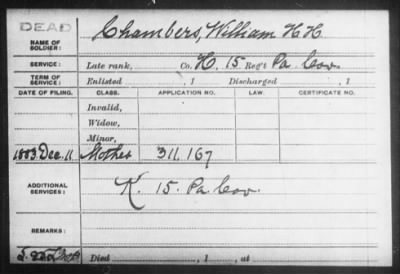 DEAD
NAME OF SOLDIER: Chambers, William H H
SERVICE: Late rank, Co. H. 15 Reg't Pa. Cav.
TERM OF SERVICE: Enlisted , 1 Discharged , 1
DATE OF FILING. CLASS. APPLICATION NO. LAW. CERTIFICATE NO.
Invalid,
Widow,
Minor,
1883 Dec. 11 Mother 311.167
ADDITIONAL SERVICES: K. 15. Pa. Cav.
REMARKS:
Died , 1 , at